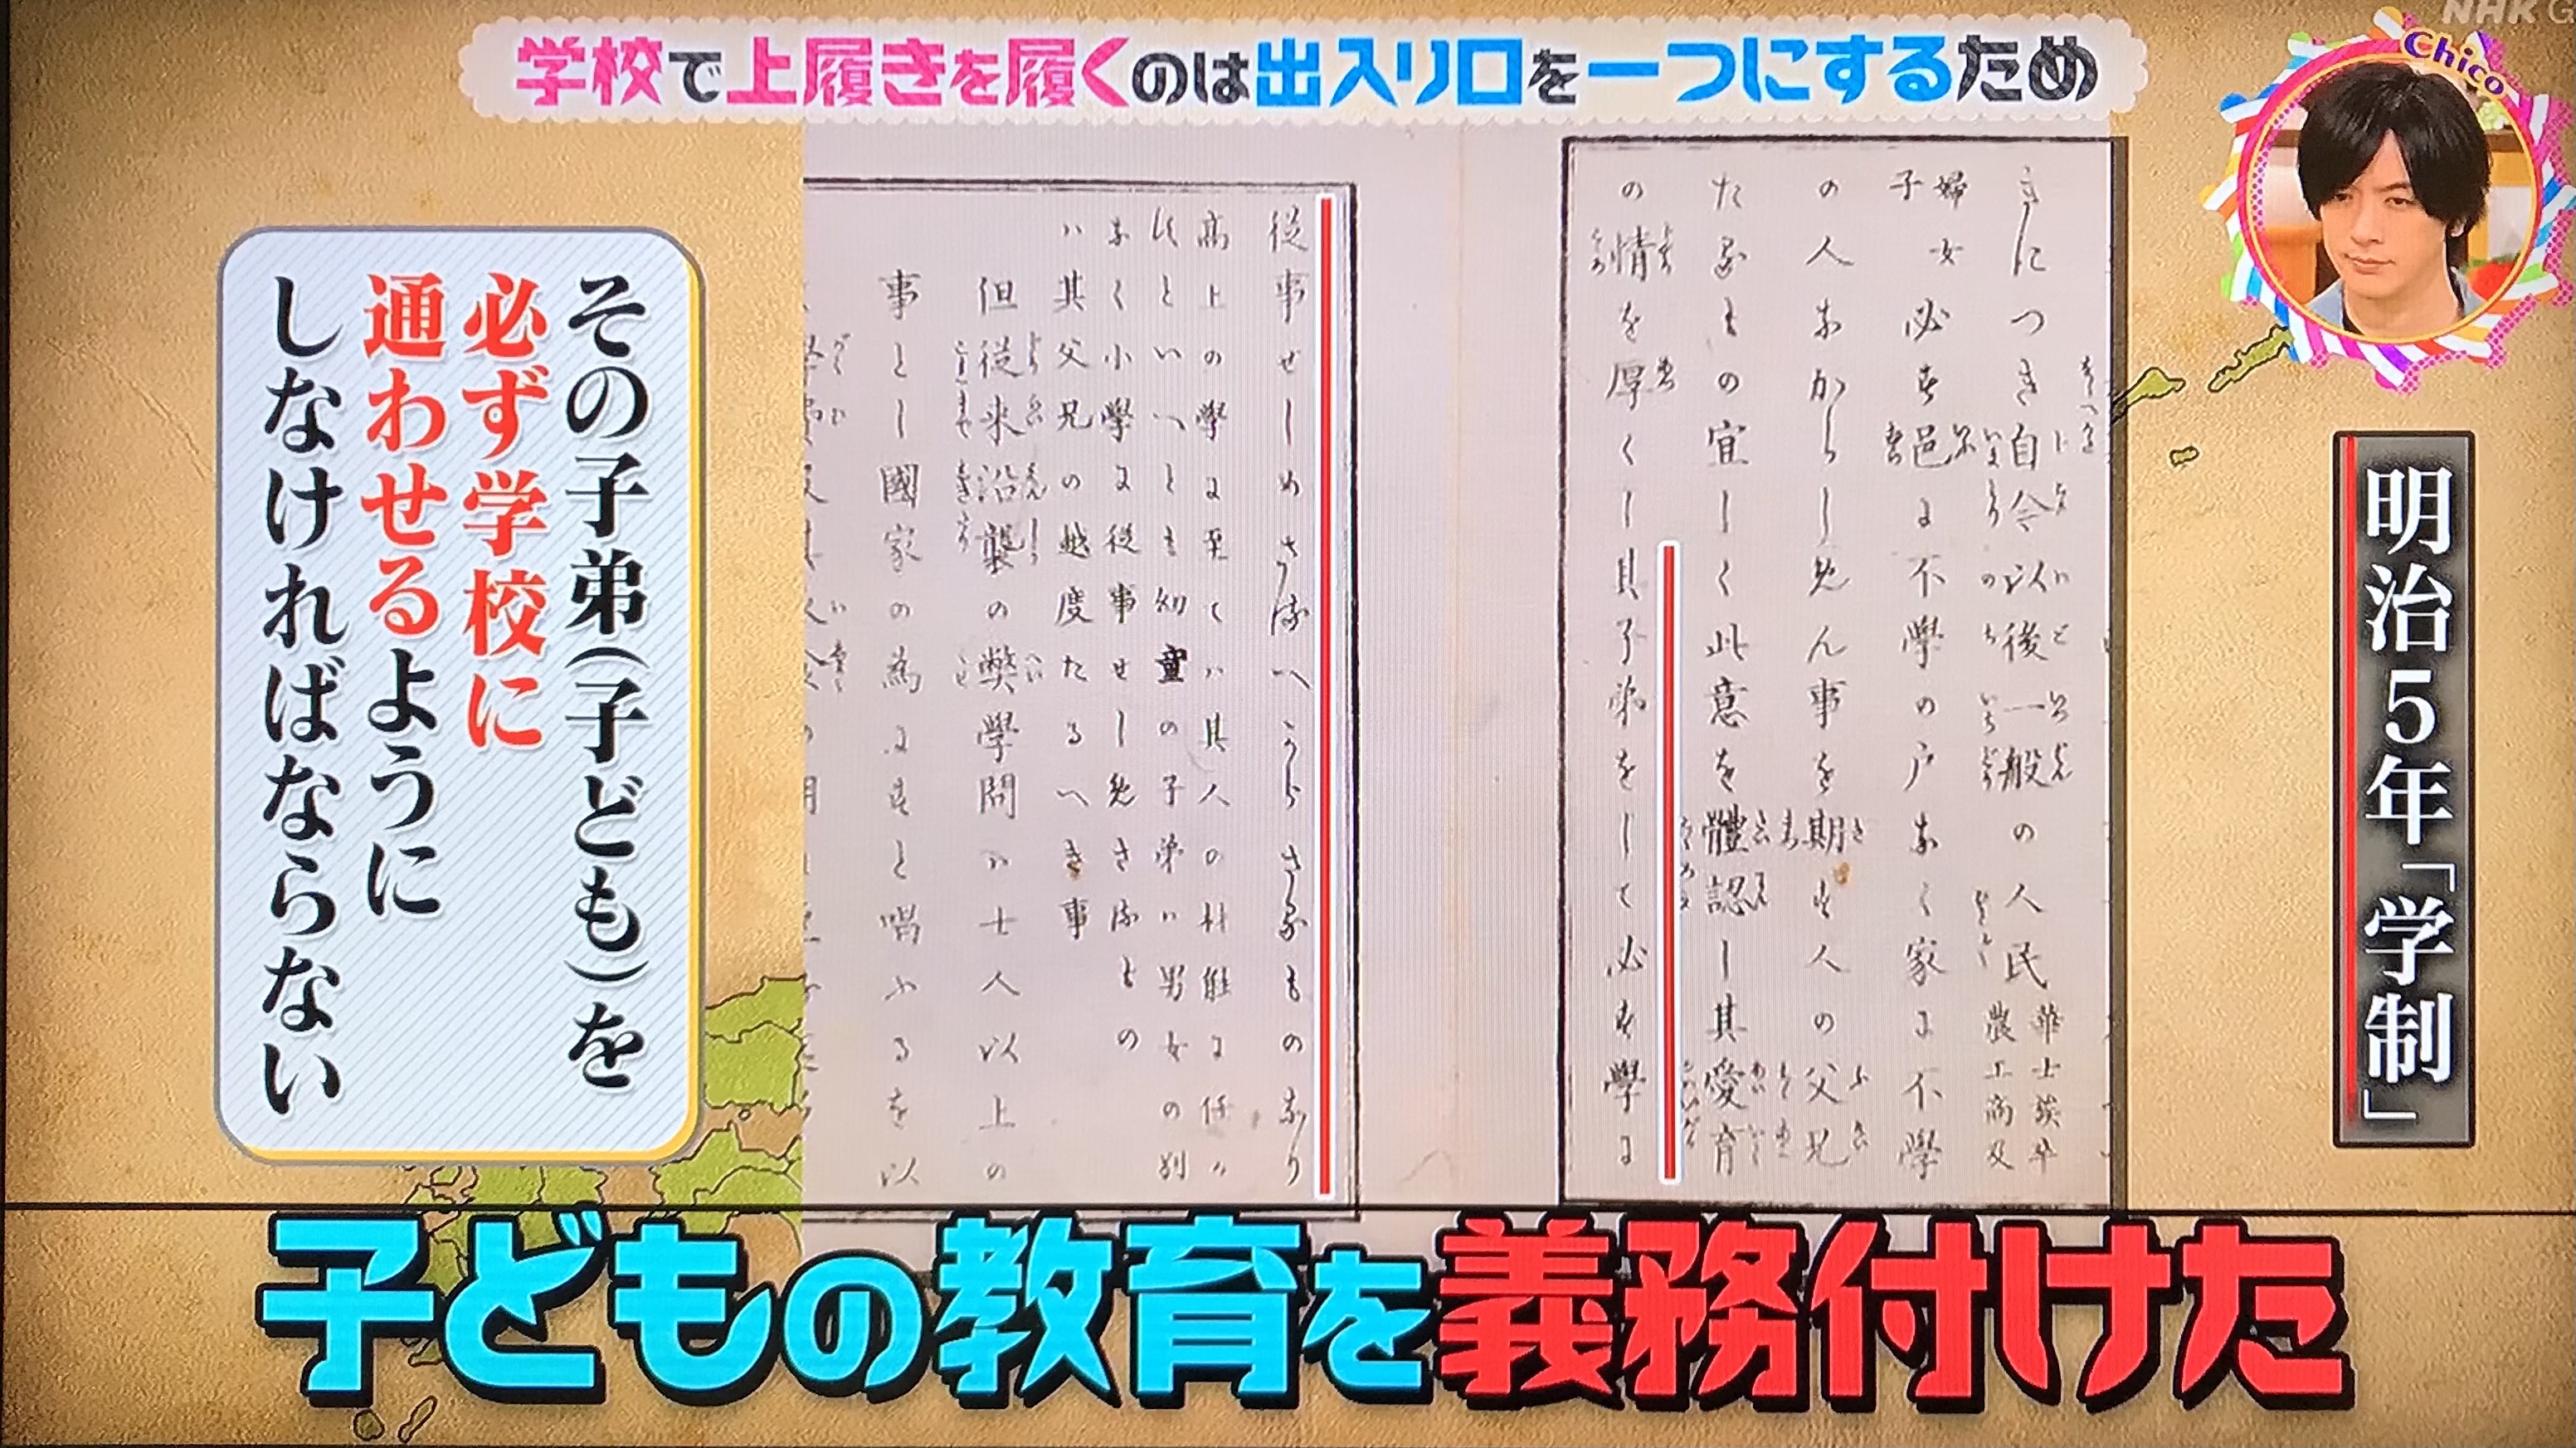 NHK G
学校で上履きを履くのは出入り口を一つにするため
Chico
明治5年「学制」
につき自今以後一般の人民華士族卒農工商及
婦女子必す邑に不學の戸なく家に不學
の人なからしめん事を期す人の父兄
たるもの宜しく此意を體認し其愛育
の情を厚くし其子弟をして必す學に
従事せしめさるへからさるものなり
高上の學に至てハ其人の材能に任
といへとも幼童の子弟ハ男女の別
なく小學に従事せしめさるもの
ハ其父兄の越度たるへき事
但従来沿襲の弊學問ハ士人以上の
事とし國家の為にすと唱ふるを以
その子弟(子ども)を
必ず学校に
通わせるように
しなければならない
子どもの教育を義務付けた